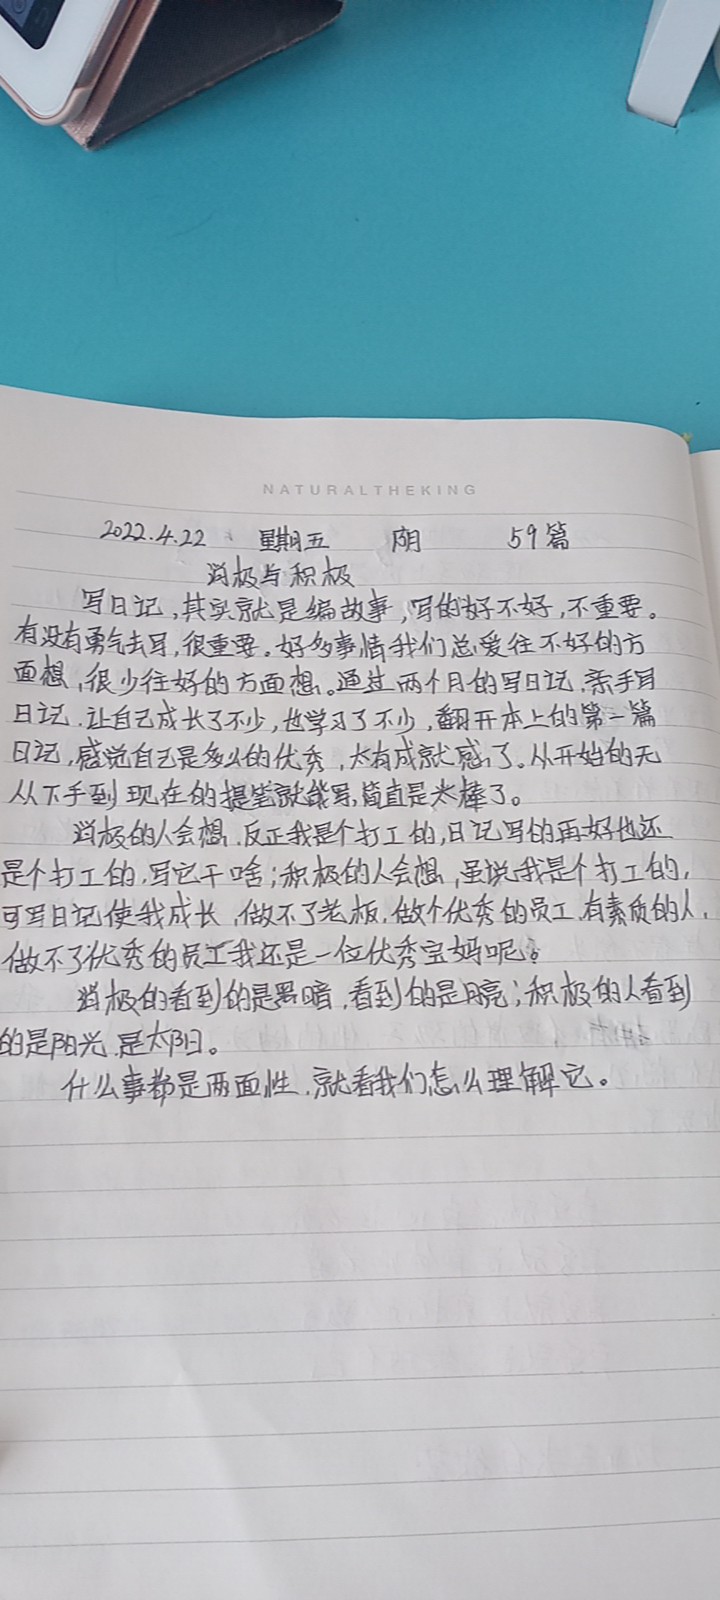 NATURALTHEKING
2022.4.22 星期五 阴 59篇
消极与积极
写日记，其实就是编故事，写的好不好，不重要。
有没有勇气去写，很重要。好多事情我们总爱往不好的方
面想，很少往好的方面想。通过两个月的写日记，亲手写
日记，让自己成长了不少，也学习了不少，翻开本上的第一篇
日记，感觉自己是多么的优秀，太有成就感了。从开始的无
从下手到现在的提笔就能写，简直是太棒了。
消极的人会想，反正我是个打工的，日记写的再好也还
是个打工的，写它干啥；积极的人会想，虽说我是个打工的，
可写日记使我成长，做不了老板，做个优秀的员工，有素质的人，
做不了优秀的员工我还是一位优秀宝妈呢。
消极的看到的是黑暗，看到的是月亮；积极的人看到
的是阳光，是太阳。
什么事都是两面性，就看我们怎么理解它。